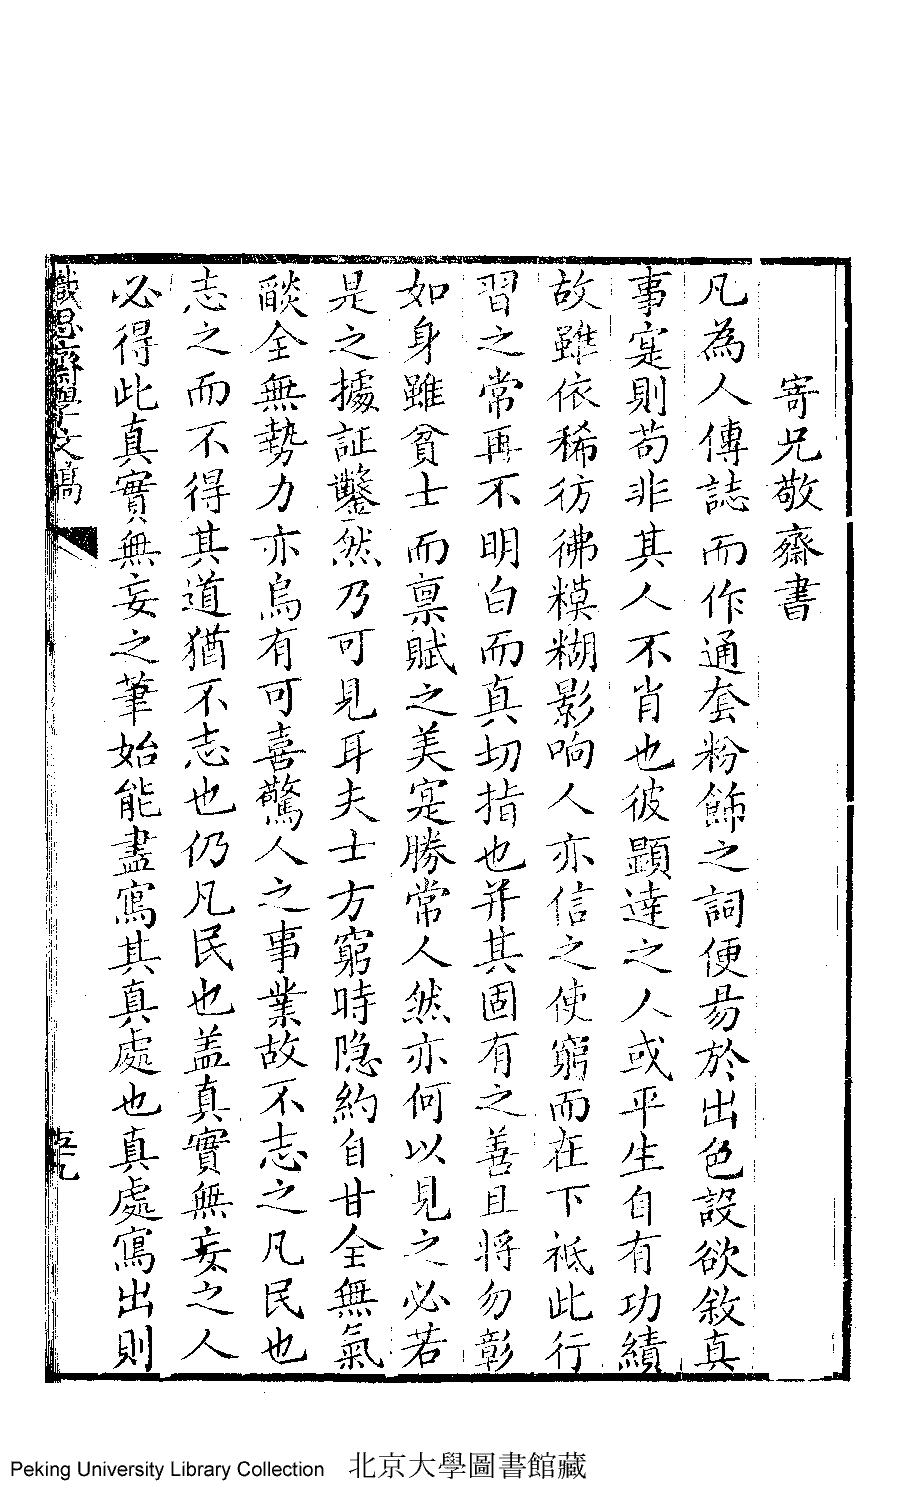 寄兄敬齋書
凡為人傳誌而作通套粉飾之詞便昜於出色設欲敘真
事寔則苟非其人不肖也彼顯達之人或平生自有功績
故雖依稀彷彿糢糊影响人亦信之使窮而在下祗此行
習之常再不明白而真切指也并其固有之善且将勿彰
如身雖貧士而禀賦之美寔勝常人然亦何以見之必若
是之據証鑿然乃可見耳夫士方窮時隐約自甘全無氣
燄全無勢力亦烏有可喜驚人之事業故不志之凡民也
志之而不得其道猶不志也仍凡民也盖真實無妄之人
必得此真實無妄之筆始能盡寫其真處也真處寫出則
思齋學文稿
五九
Peking University Library Collection 北京大學圖書館藏